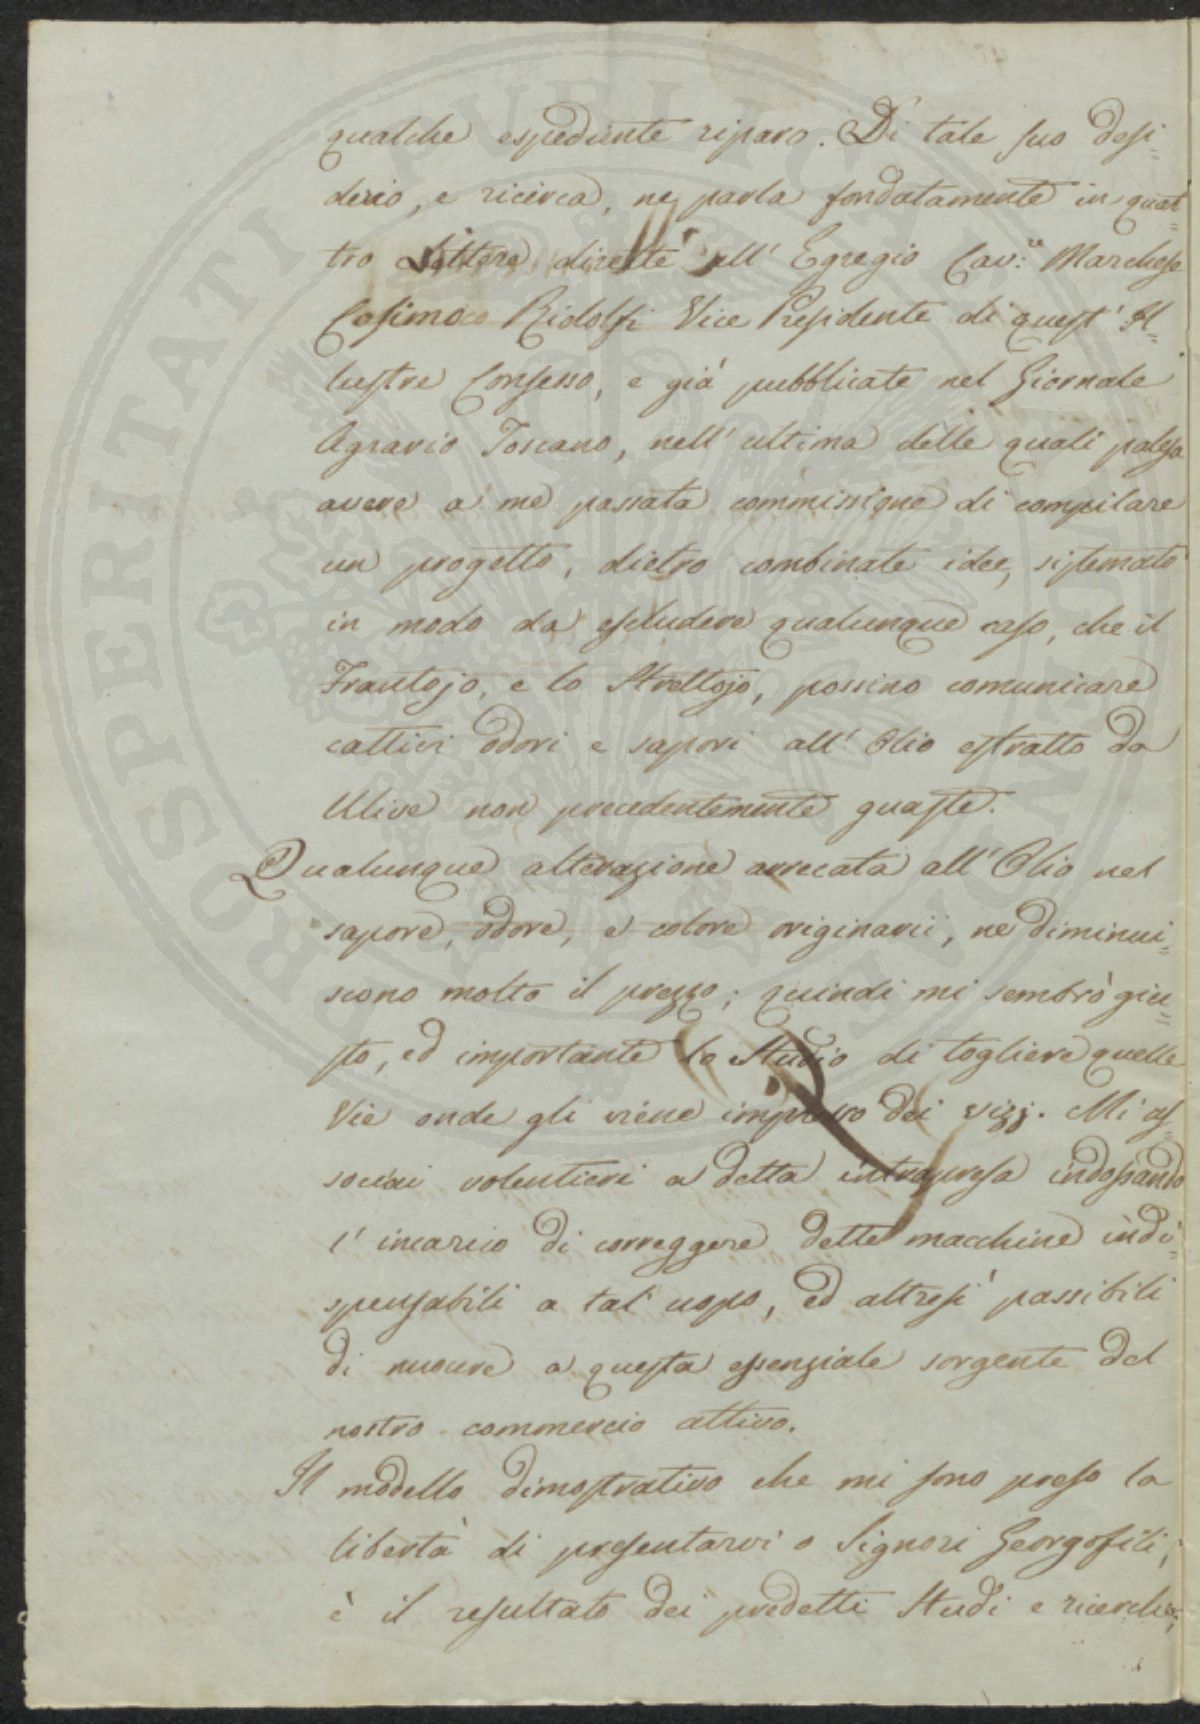 qualche espediente riparo. Di tale suo desi=
derio, e ricerca, ne parla fondatamente in quat=
tro Lettere dirette all' Egregio Cav:re Marchese
Cosimo Ridolfi Vice Presidente di quest' Il=
lustre Consesso, e già pubblicate nel Giornale
Agrario Toscano, nell' ultima delle quali palesa
avere a me passata commissione di compilare
un progetto, dietro combinate idee, sistemato
in modo da escludere qualunque caso, che il
Frantojo, e lo Strettojo, possino comunicare
cattivi odori e sapori all' Olio estratto da
Ulive non precedentemente guaste.
Qualunque alterazione arrecata all' Olio nel
sapore, odore, e colore originarii, ne diminui=
scono molto il prezzo; quindi mi sembrò giu=
sto, ed importante lo Studio di togliere quelle
Vie onde gli viene impresso dei vizj. Mi as=
sociai volentieri a detta intrapresa indossando
l' incarico di correggere dette macchine indi=
spensabili a tal' uopo, ed altresì passibili
di nuocere a questa essenziale sorgente del
nostro commercio attivo.
Il modello dimostrativo che mi sono preso la
libertà di presentarvi o Signori Georgofili,
è il resultato dei predetti Studi e ricerche;
PROSPERITATI PUBLICAE AUGENDAE